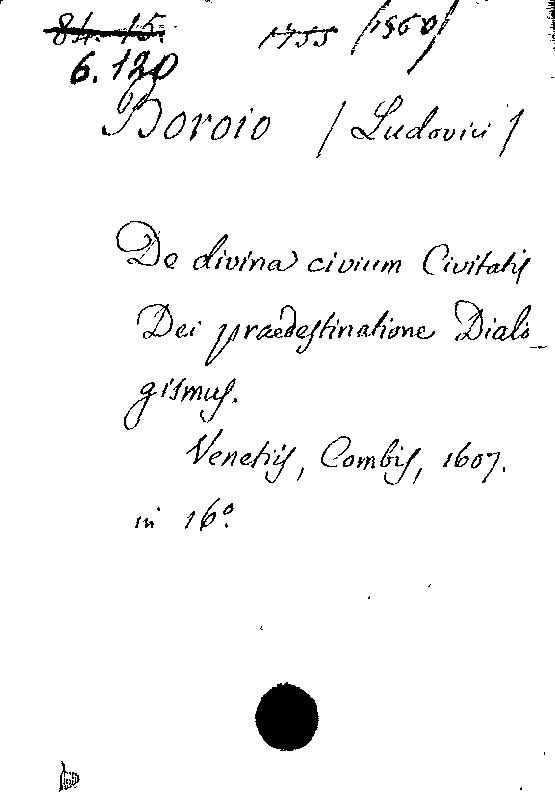 84. 15. 1755 /1860/
6. 120
Boroio / Ludovici /
De divina civium Civitatis
Dei praedestinatione Dialo-
gismus.
Venetiis, Combis, 1607.
in 16°.